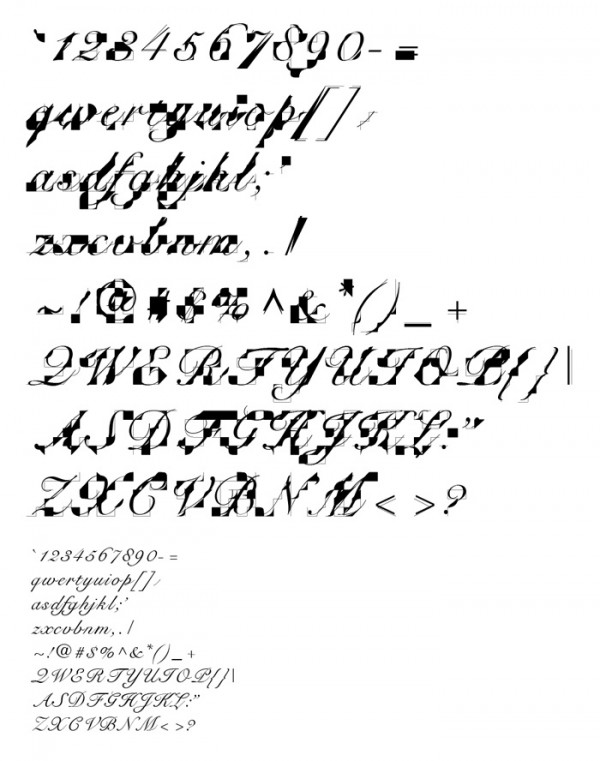 `1234567890-=
qwertyuiop[]\
asdfghjkl;'
zxcvbnm,./
~!@#$%^&*()_+
QWERTYUIOP{}|
ASDFGHJKL:"
ZXCVBNM<>?
`1234567890-=
qwertyuiop[]\
asdfghjkl;'
zxcvbnm,./
~!@#$%^&*()_+
QWERTYUIOP{}|
ASDFGHJKL:"
ZXCVBNM<>?